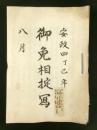 安政四丁巳年
御免相掟写
八月